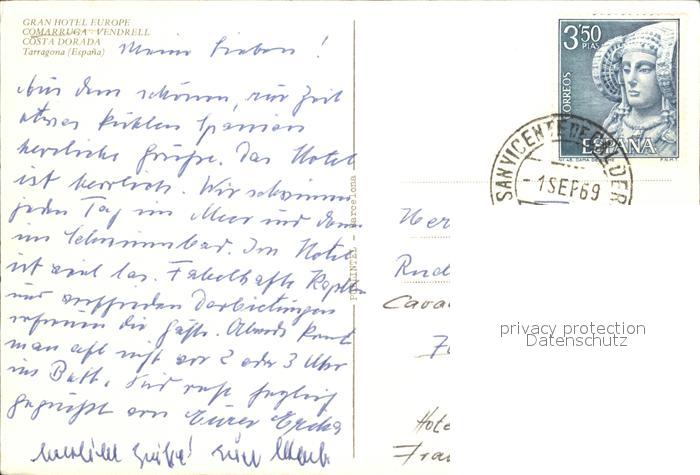 GRAN HOTEL EUROPE
COMARRUGA - VENDRELL
COSTA DORADA
Tarragona (España)
Meine Lieben!
Aus dem schönen, zur Zeit
etwas kühlen Spanien
herzliche Grüße. Das Hotel
ist herrlich. Wir schwimmen
jeden Tag im Meer und dann
im Schwimmbad. Im Hotel
ist viel los. Fabelhafte Kapellen
und Darbietungen
erfreuen die Gäste. Abends kommt
man oft nicht vor 2 oder 3 Uhr
ins Bett. Seid recht herzlich
gegrüßt von Eurer
herzliche Grüße! Euer
Barcelona
3'50
PTAS
CORREOS
ESPAÑA
F.N.M.T.
SAN VICENTE DE CALDERS
- 1 SEP 69
Her
Rud
Cava
Hote
Fran
privacy protection
Datenschutz